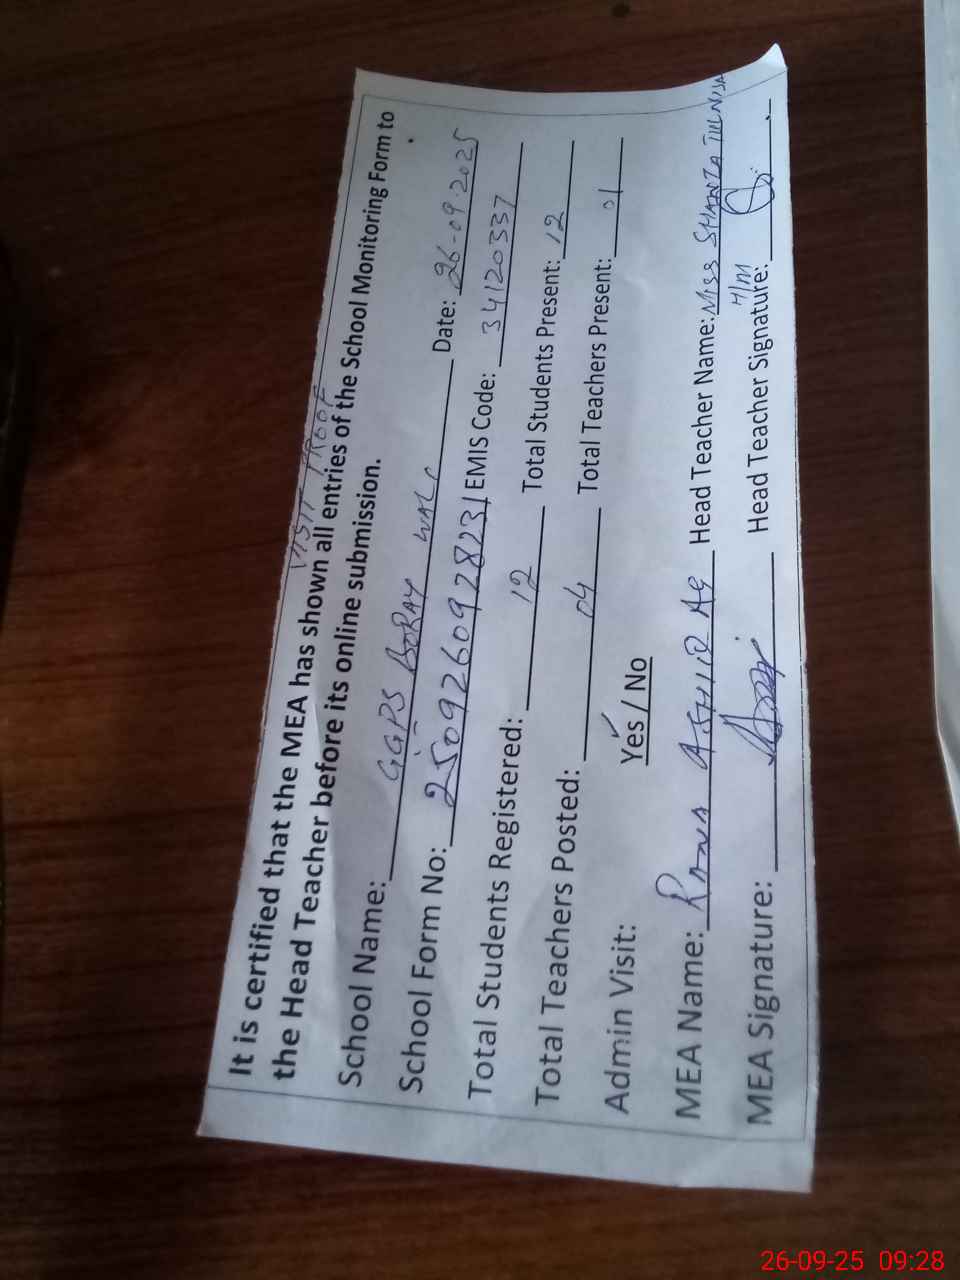 VISIT PROOF
It is certified that the MEA has shown all entries of the School Monitoring Form to
the Head Teacher before its online submission.
School Name: GGPS BORAY WALI Date: 26-09-2025
School Form No: 2509260928231 EMIS Code: 34120337
Total Students Registered: 12 Total Students Present: 12
Total Teachers Posted: 04 Total Teachers Present: 01
Admin Visit: Yes ✓ / No
MEA Name: RANA ASHIQ Head Teacher Name: MISS
H/M
MEA Signature: Head Teacher Signature:
26-09-25 09:28